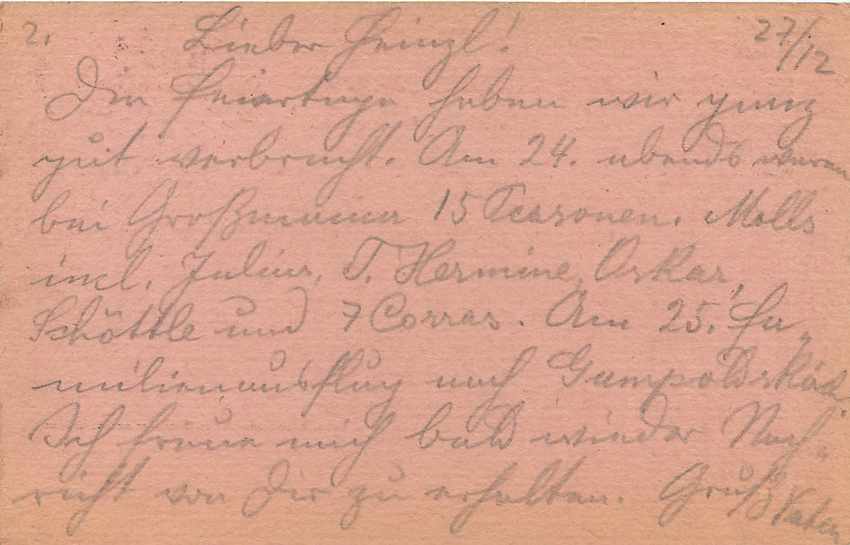 2. Lieber Heinzl! 27/12
Die Feiertage haben wir ganz
gut verbracht. Am 24. abends waren
bei Großmama 15 Personen. Molls
incl. Julius, T. Hermine, Oskar,
Schöttle und 7 Corras. Am 25. Fa-
milienausflug nach Gumpoldskirch.
Ich freue mich bald wieder Nach-
richt von Dir zu erhalten. Gruß Vater